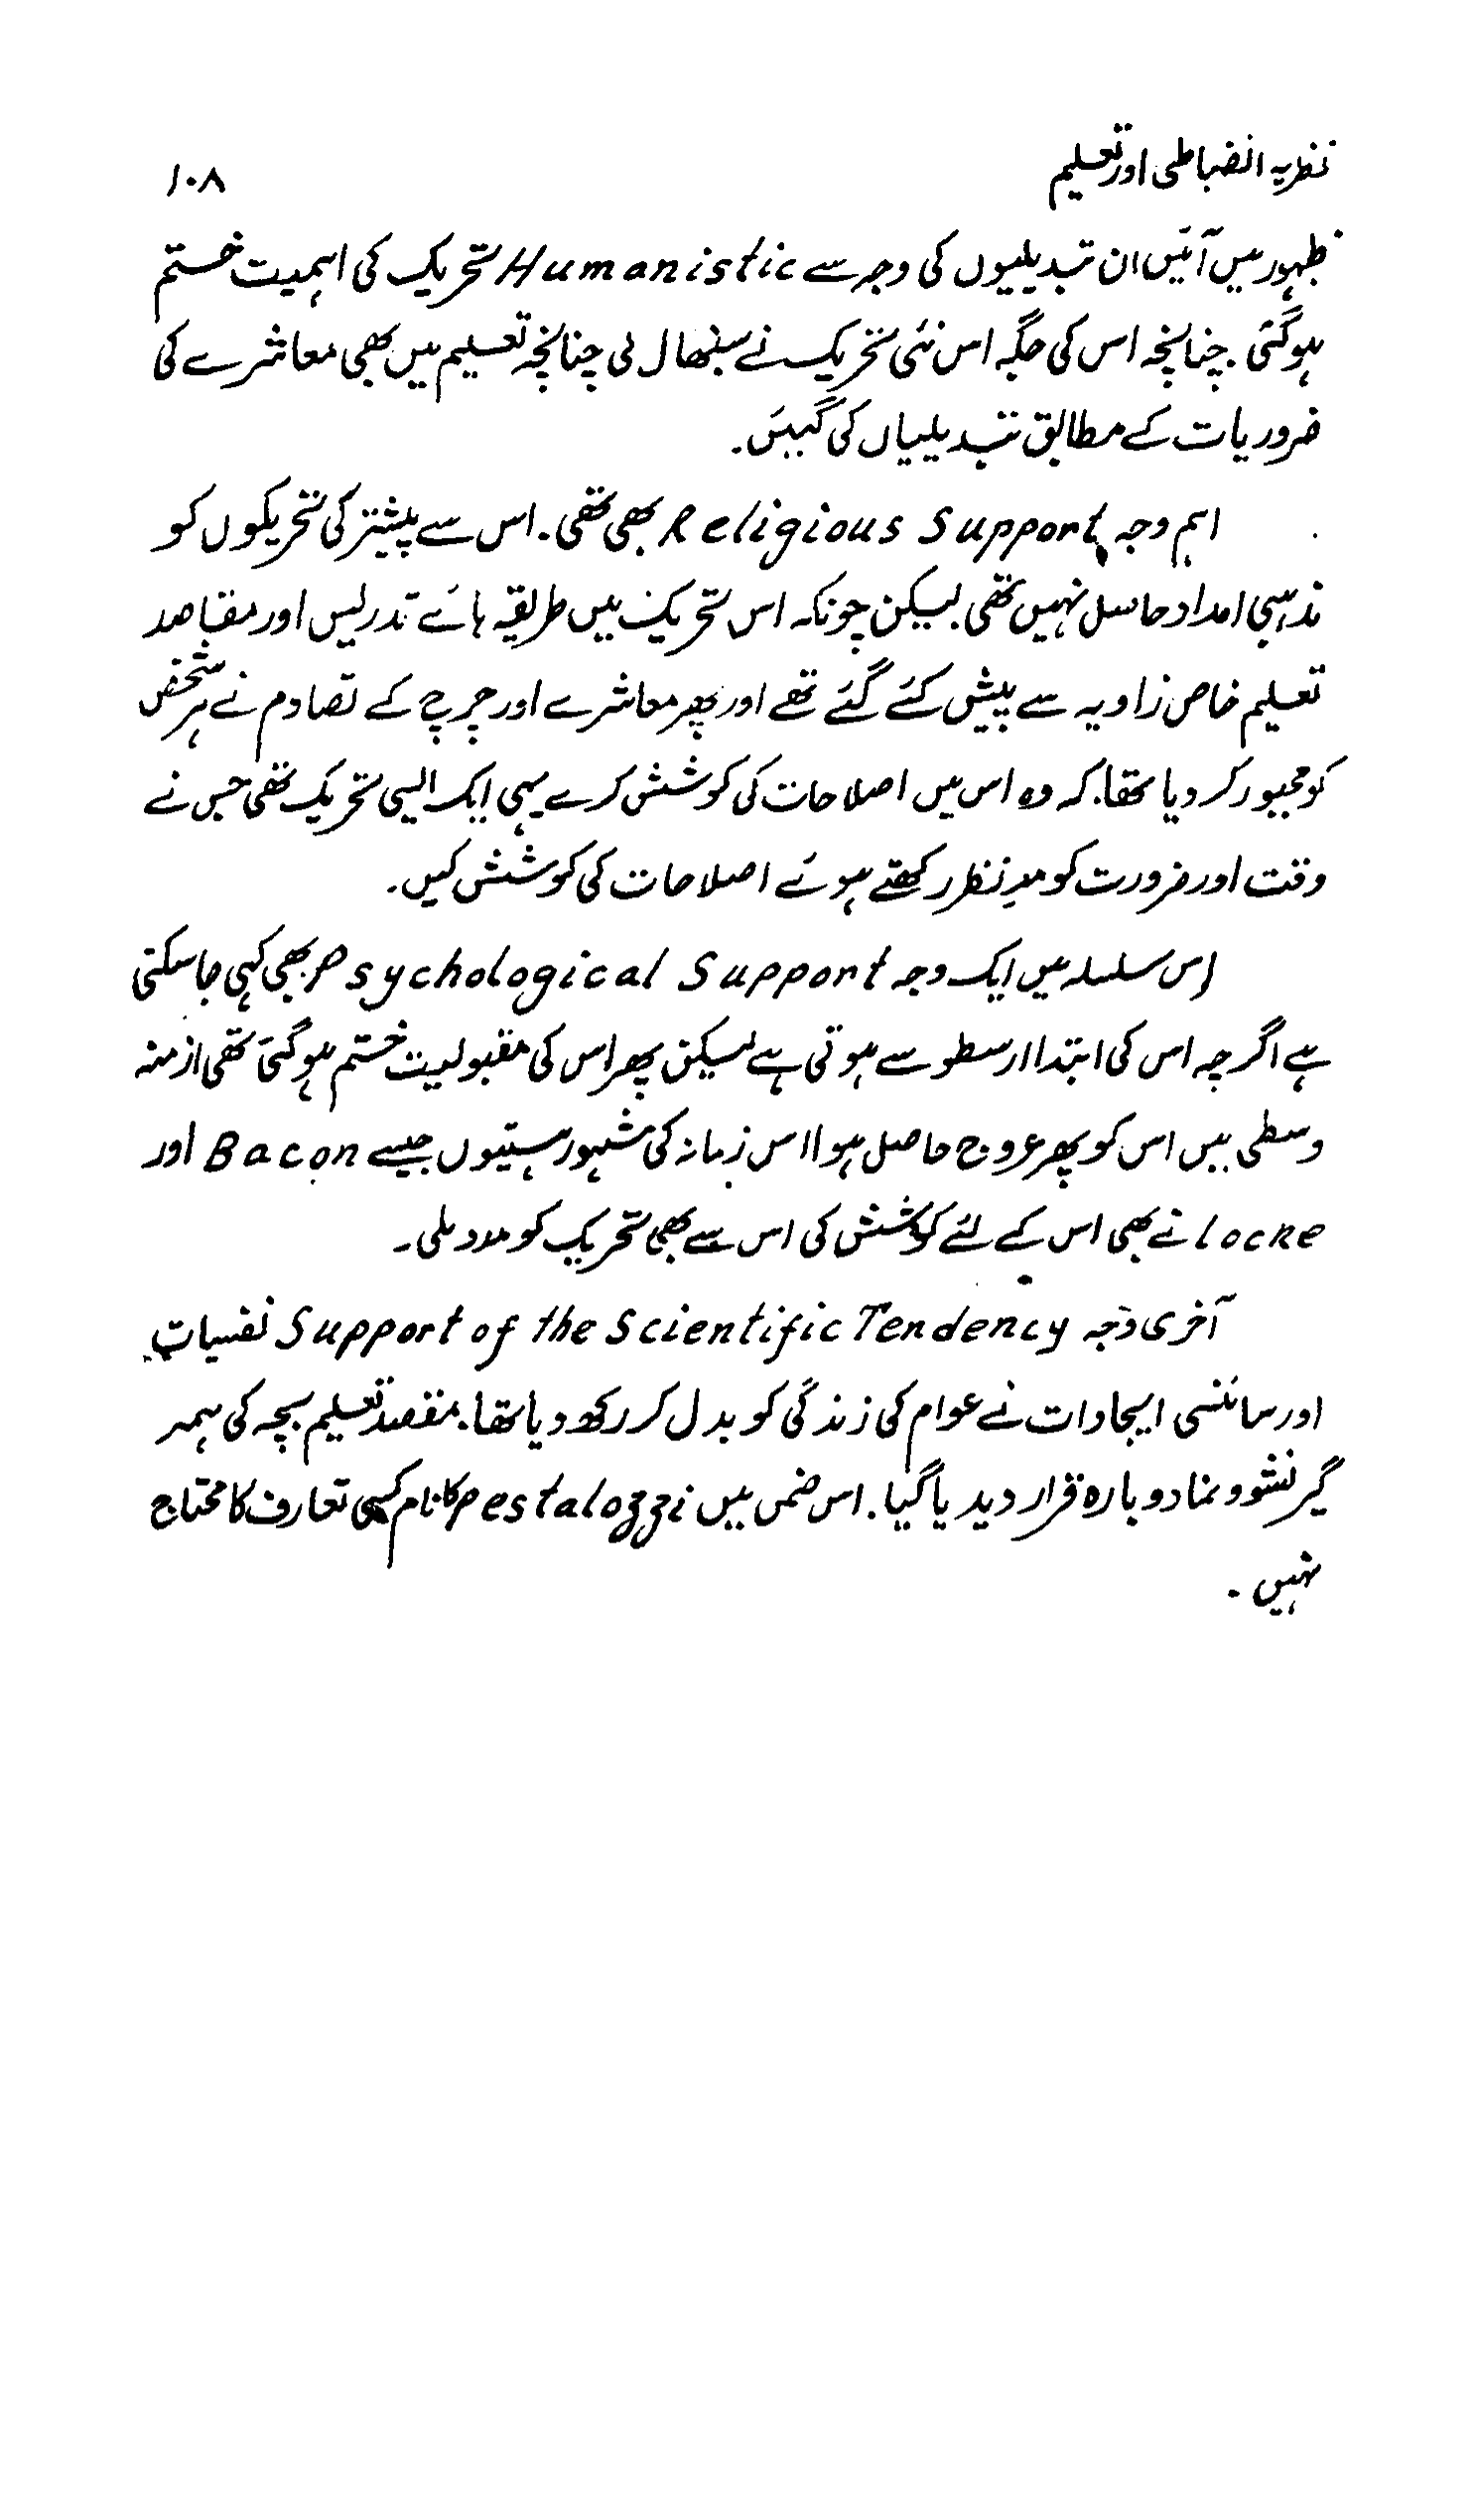 نظریہ انضباطی اور تعلیم
۱۰۸
ظہور میں آئیں ان تبدیلیوں کی وجہ سے Humanistic تحریک کی اہمیت ختم
ہو گئی۔ چنانچہ اس کی جگہ اس نئی تحریک نے سنبھال لی چنانچہ تعلیم میں بھی معاشرے کی
ضروریات کے مطابق تبدیلیاں کی گئیں۔
اہم وجہ Religious Support بھی تھی۔ اس سے پیشتر کی تحریکوں کو
مذہبی امداد حاصل نہیں تھی لیکن چونکہ اس تحریک میں طریقہ ہائے تدریس اور مقاصد
تعلیم خاص زاویہ سے پیش کئے گئے تھے اور پھر معاشرے اور چرچ کے تصادم نے ہر شخص
کو مجبور کر دیا تھا۔ کہ وہ اس میں اصلاحات کی کوشش کرے یہی ایک ایسی تحریک تھی جس نے
وقت اور ضرورت کو مدِ نظر رکھتے ہوئے اصلاحات کی کوشش کیں۔
اس سلسلہ میں ایک وجہ Psychological Support بھی کہی جا سکتی
ہے اگرچہ اس کی ابتدا ارسطو سے ہوتی ہے لیکن پھر اس کی مقبولیت ختم ہو گئی تھی ازمنہ
وسطی میں اس کو پھر عروج حاصل ہوا اس زمانہ کی مشہور ہستیوں جیسے Bacon اور
Locke نے بھی اس کے لئے کوشش کی اس سے بھی تحریک کو مدد ملی۔
آخری وجہ Support of the Scientific Tendency نفسیات
اور سائنسی ایجادات نے عوام کی زندگی کو بدل کر رکھ دیا تھا۔ مقصد تعلیم بچہ کی ہمہ
گیر نشوونما دوبارہ قرار دیدیا گیا۔ اس ضمن میں Pestalozzi کا نام کسی تعارف کا محتاج
نہیں۔